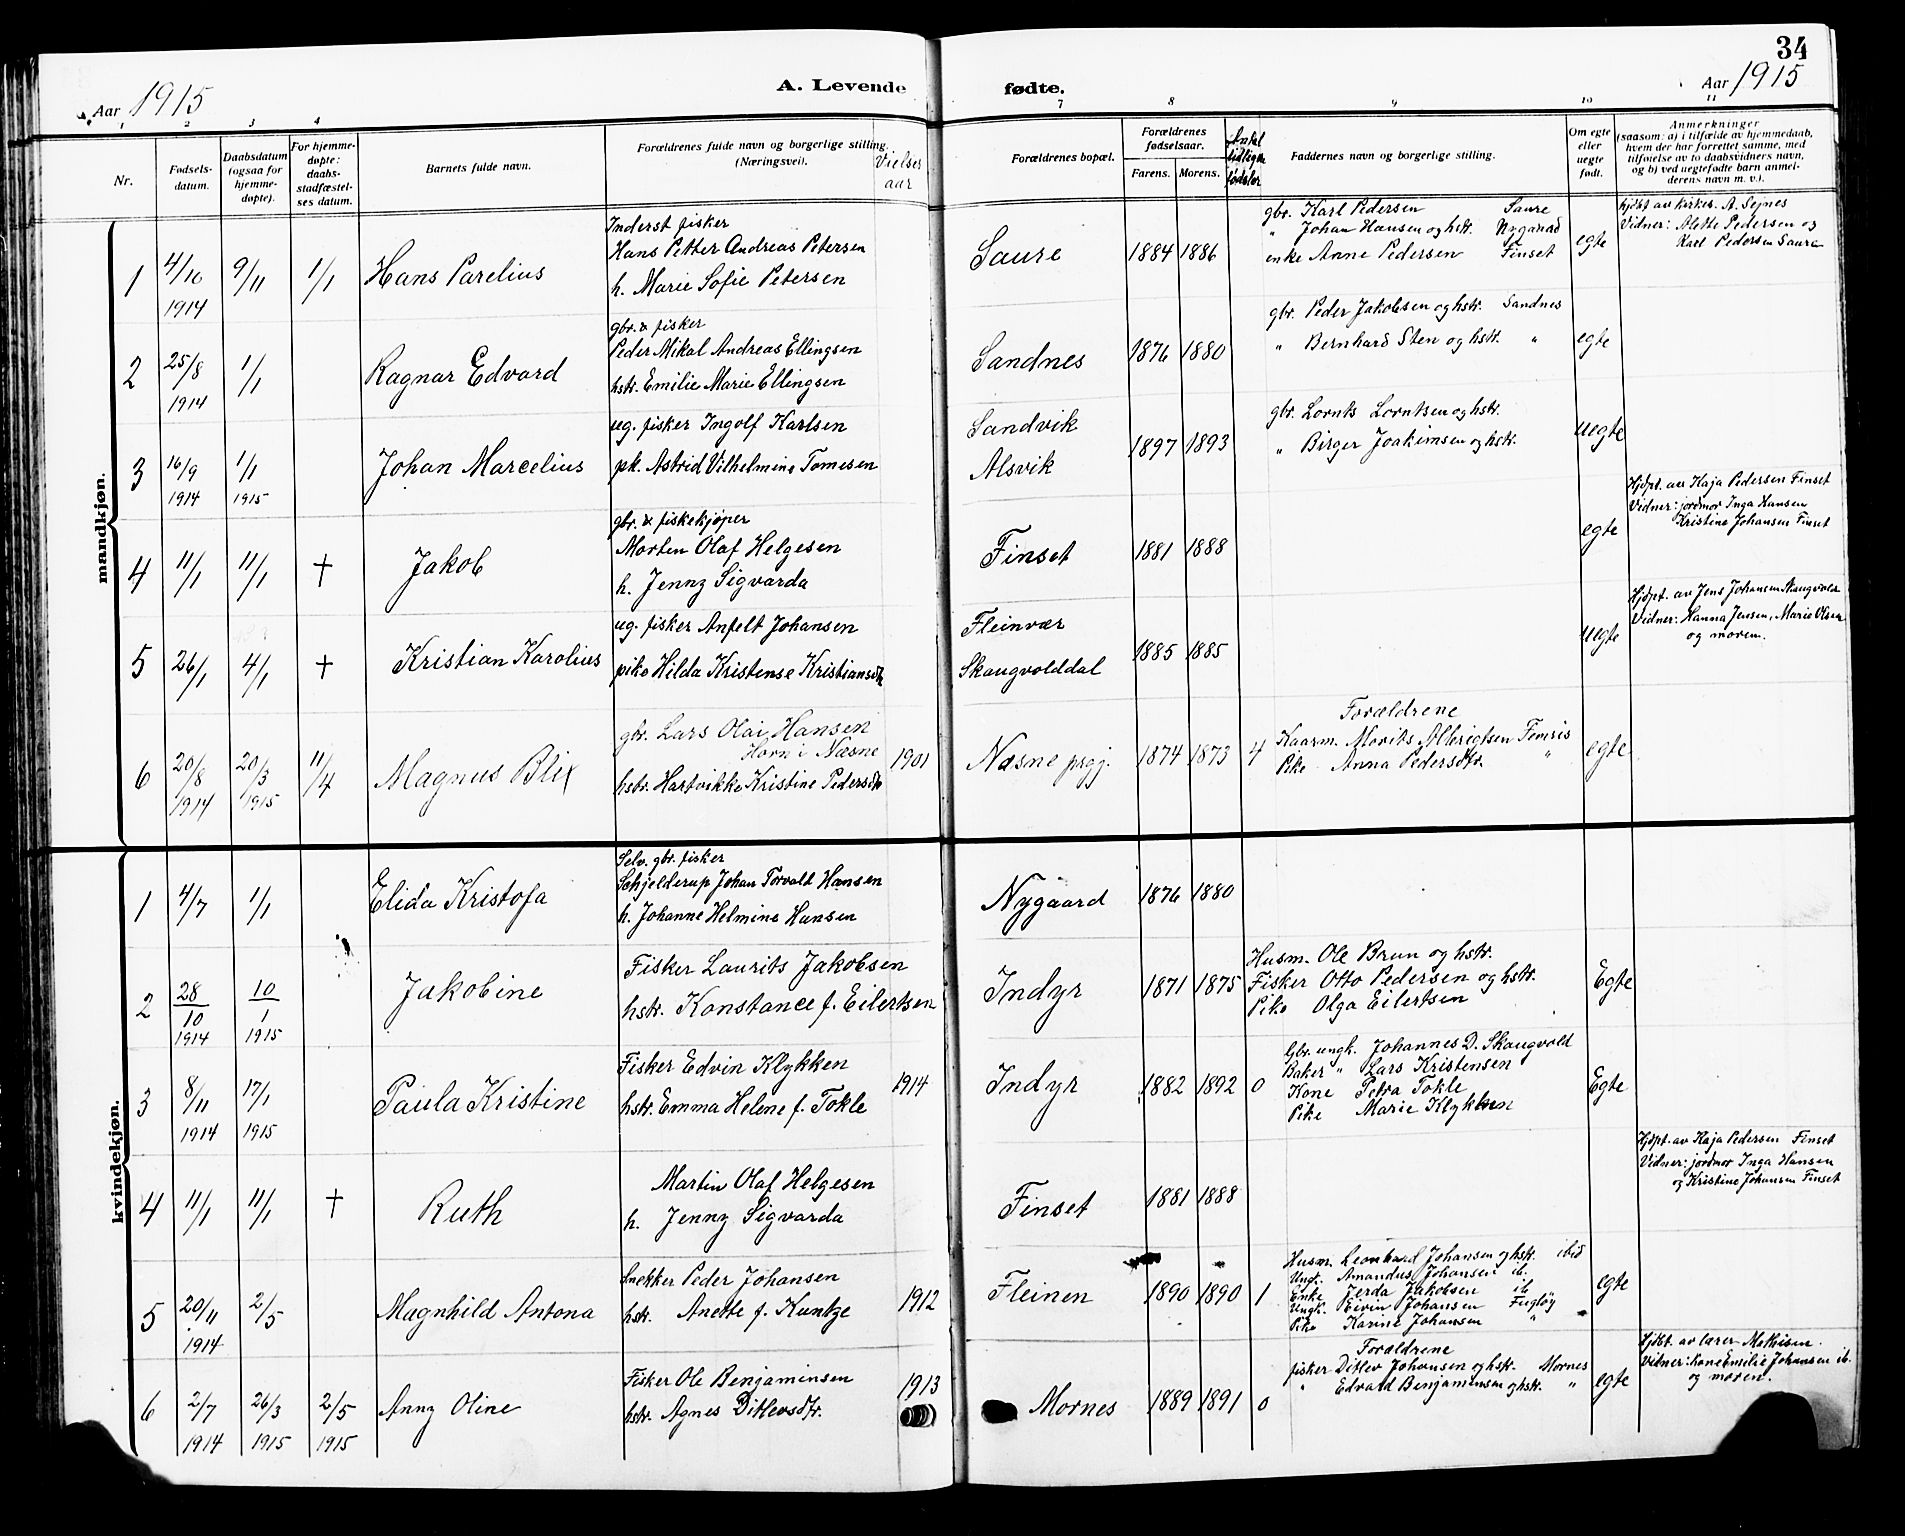 34
Aar 1915
A. Levende
fødte.
Aar 1915
1 2 3 4
7 8 9 10 11
Nr.
Fødsels-
datum.
Daabsdatum
(ogsaa for
hjemme-
døpte).
For hjemme-
døpte:
daabs-
stadfæstel-
ses datum.
Barnets fulde navn.
Forældrenes fulde navn og borgerlige stilling.
(Næringsvei).
Vielses
aar
Forældrenes bopæl.
Forældrenes
fødselsaar.
Farens. Morens.
Antal
tidligere
fødsler
Faddernes navn og borgerlige stilling.
Om egte
eller
uegte
født.
Anmerkninger
(saasom: a) i tilfælde av hjemmedaab,
hvem der har forrettet samme, med
tilføielse av to daabsvidners navn,
og b) ved uegtefødte barn anmel-
derens navn m. v.).
mandkjøn.
1 4/10 1914 9/11 1/1 Hans Parelius
Inderst fisker
Hans Petter Andreas Petersen
h. Marie Sofie Petersen
Saure 1884 1886
gbr. Karl Pedersen Saure
" Johan Hansen og hst. Nygaard
enke Anne Pedersen Finset
egte
hjdpt av kirkes. A. Sejnes
Vidner: Alette Pedersen og
Karl Pedersen Saura
2 25/8 1914 1/1 Ragnar Edvard
gbr. & fisker
Peder Mikal Andreas Ellingsen
hstr. Emilie Marie Ellingsen
Sandnes 1876 1880
gbr. Peder Jakobsen og hstr. Sandnes
" Bernhard Sten og hstr. "
egte
3 16/9 1914 1/1 1915 Johan Marcelius
ug. fisker Ingolf Karlsen
pk. Astrid Vilhelmine Tomesen
Sandvik
Alsvik
1897 1893
gbr. Lornts Lorntsen og hstr.
" Birger Joakimsen og hstr.
uegte
4 11/1 11/1 † Jakob
gbr. & fiskekjøper
Morten Olaf Helgesen
h. Jenny Sigvarda
Finset 1881 1888
egte
Hjdpt. av Kaja Pedersen Finset
Vidner: jordmor Inga Hansen
Kristine Johansen Finset
5 26/1 4/1 † Kristian Karolius
ug. fisker Anfelt Johansen
pike Hilda Kristense Kristiansdtr
Fleinvær
Skaugvolddal
1885 1885
uegte
Hjdpt. av Jens Johansen Skaugvolda
Vidner: Hanna Jensen, Marie Olsen
og moren.
6 20/8 1914 20/3 1915 11/4 Magnus Blix
gbr. Lars Olai Hansen
Horn i Næsne
hstr. Hartvikke Kristine Pedersdtr
1901
Næsne prgj. 1874 1873 4
Forældrene
Kaarm. Morits Albrigtsen Temris
Pike Anna Pedersdtr. "
egte
kvindekjøn.
1 4/7 1/1 Elida Kristofa
Selv. gbr. fisker
Schjelderup Johan Torvald Hansen
h. Johanne Helmine Hansen
Nygaard 1876 1880
2 28/10 1914 10/1 1915 Jakobine
Fisker Laurits Jakobsen
hstr. Konstance f. Eilertsen
Indyr 1871 1875
Husm. Ole Brun og hstr.
Fisker Otto Pedersen og hstr.
Pike Olga Eilertsen
Egte
3 8/11 1914 17/1 1915 Paula Kristine
Fisker Edvin Klykken
hstr. Emma Helene f. Tokle
1914
Indyr 1882 1892 0
Gbr. ungk. Johannes D. Skaugvold
Baker " Lars Kristensen
Kone Petra Tokle
Pike Marie Klykken
Egte
4 11/1 11/1 † Ruth
Martin Olaf Helgesen
h. Jenny Sigvarda
Finset 1881 1888
Hjdpt. av Kaja Pedersen Finset
Vidner: jordmor Inga Hansen
og Kristine Johansen Finset
5 20/11 1914 2/5 Magnhild Antona
Snekker Peder Johansen
hstr. Anette f. Kuntze
1912
Fleinen 1890 1890 1
Husm. Leonhard Johansen og hstr. ibid
Ungk. Amandus Johansen ib.
Enke Jerda Jakobsen ib
Ungk. Eivin Johansen Fugløy
Pike Karine Johansen "
egte
6 2/7 1914 26/3 1915 2/5 1915 Anny Oline
Fisker Ole Benjaminsen
hstr. Agnes Ditlevsdtr.
1913
Mornes 1889 1891 0
Forældrene
fisker Ditlev Johansen og hstr. Mornes
" Edvard Benjaminsen og hstr. "
egte
Hjdpt. av lærer Mathisen.
Vidner: Kone Emilie Johansen ib.
og moren.